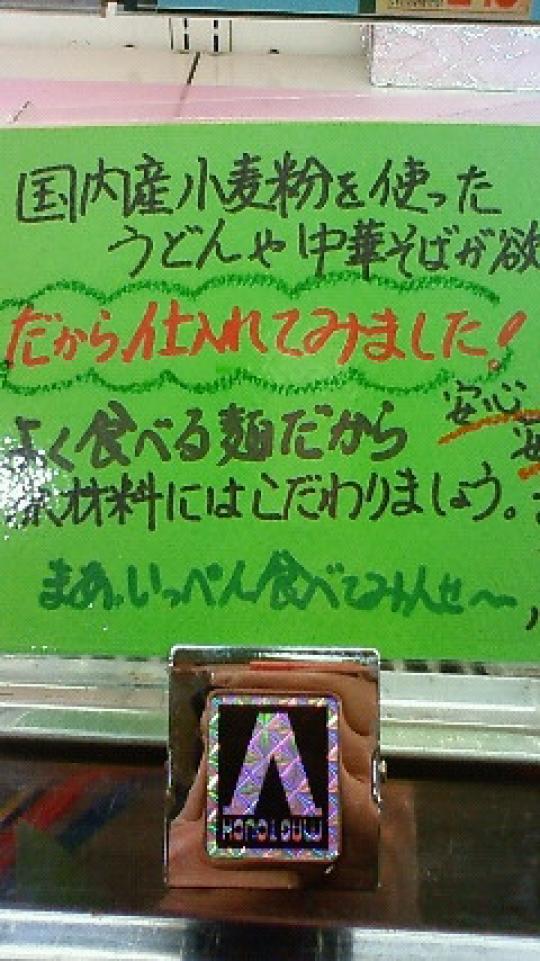 国内産小麦粉を使った
うどんや中華そばが欲
だから仕入れてみました!
よく食べる麺だから
安心
原材料にはこだわりましょう。
まあ、いっぺん食べてみんせ〜